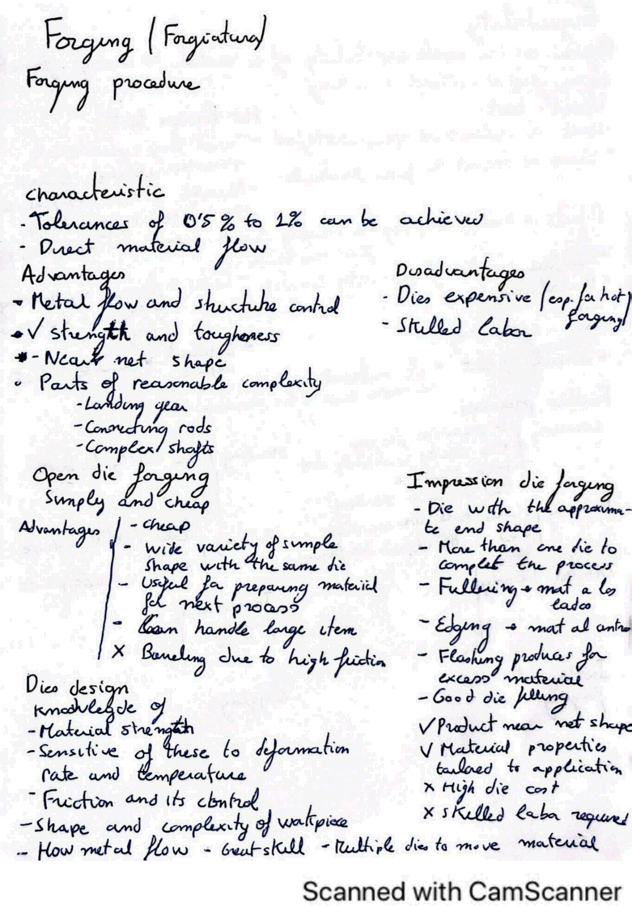 Forging (Forgiatura)
Forging procedure
characteristic
- Tolerances of 0'5 % to 1% can be achieved
- Direct material flow
Advantages
- Metal flow and structure control
- √ strength and toughness
- Near net shape
• Parts of reasonable complexity
- Landing gear
- Connecting rods
- Complex shafts
Disadvantages
- Dies expensive (esp. for hot
forging)
- Skilled labor
Open die forging
Simply and cheap
Advantages
- cheap
- wide variety of simple
shape with the same die
- Useful for preparing material
for next process
- Can handle large item
X Barreling due to high friction
Impression die forging
- Die with the approxima-
te end shape
- More than one die to
complet the process
- Fullering → mat a los
lados
- Edging → mat al centro
- Flashing produces for
excess material
- Good die filling
√ Product near net shape
√ Material properties
tailored to application
x High die cost
x skilled labor required
Dies design
knowlegde of
- Material strength
- Sensitive of these to deformation
rate and temperature
- Friction and its control
- Shape and complexity of workpiece
- How metal flow - Great skill - Multiple dies to move material
Scanned with CamScanner